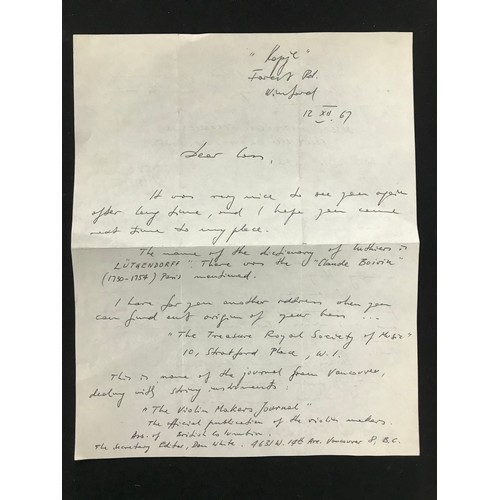 Forest Rd.
Winford
12 XII 67
Dear
It was very nice to see you again
after long time, and I hope you come
next time to my place.
The name of the dictionary of luthiers is
"LÜTGENDORFF". There was the "Claude Boivin"
(1730-1754) Paris mentioned.
I have for you another address when you
can find out origin of your
"The Treasure Royal Society of Music"
10, Stratford Place, W.1.
This is name of the journal from Vancouver,
dealing with string instruments:
"The Violin Makers Journal"
The official publication of the violin makers.
Ass. of British Columbia.
The Secretary Editor, Don White. W. 19th Ave. Vancouver 8, B.C.